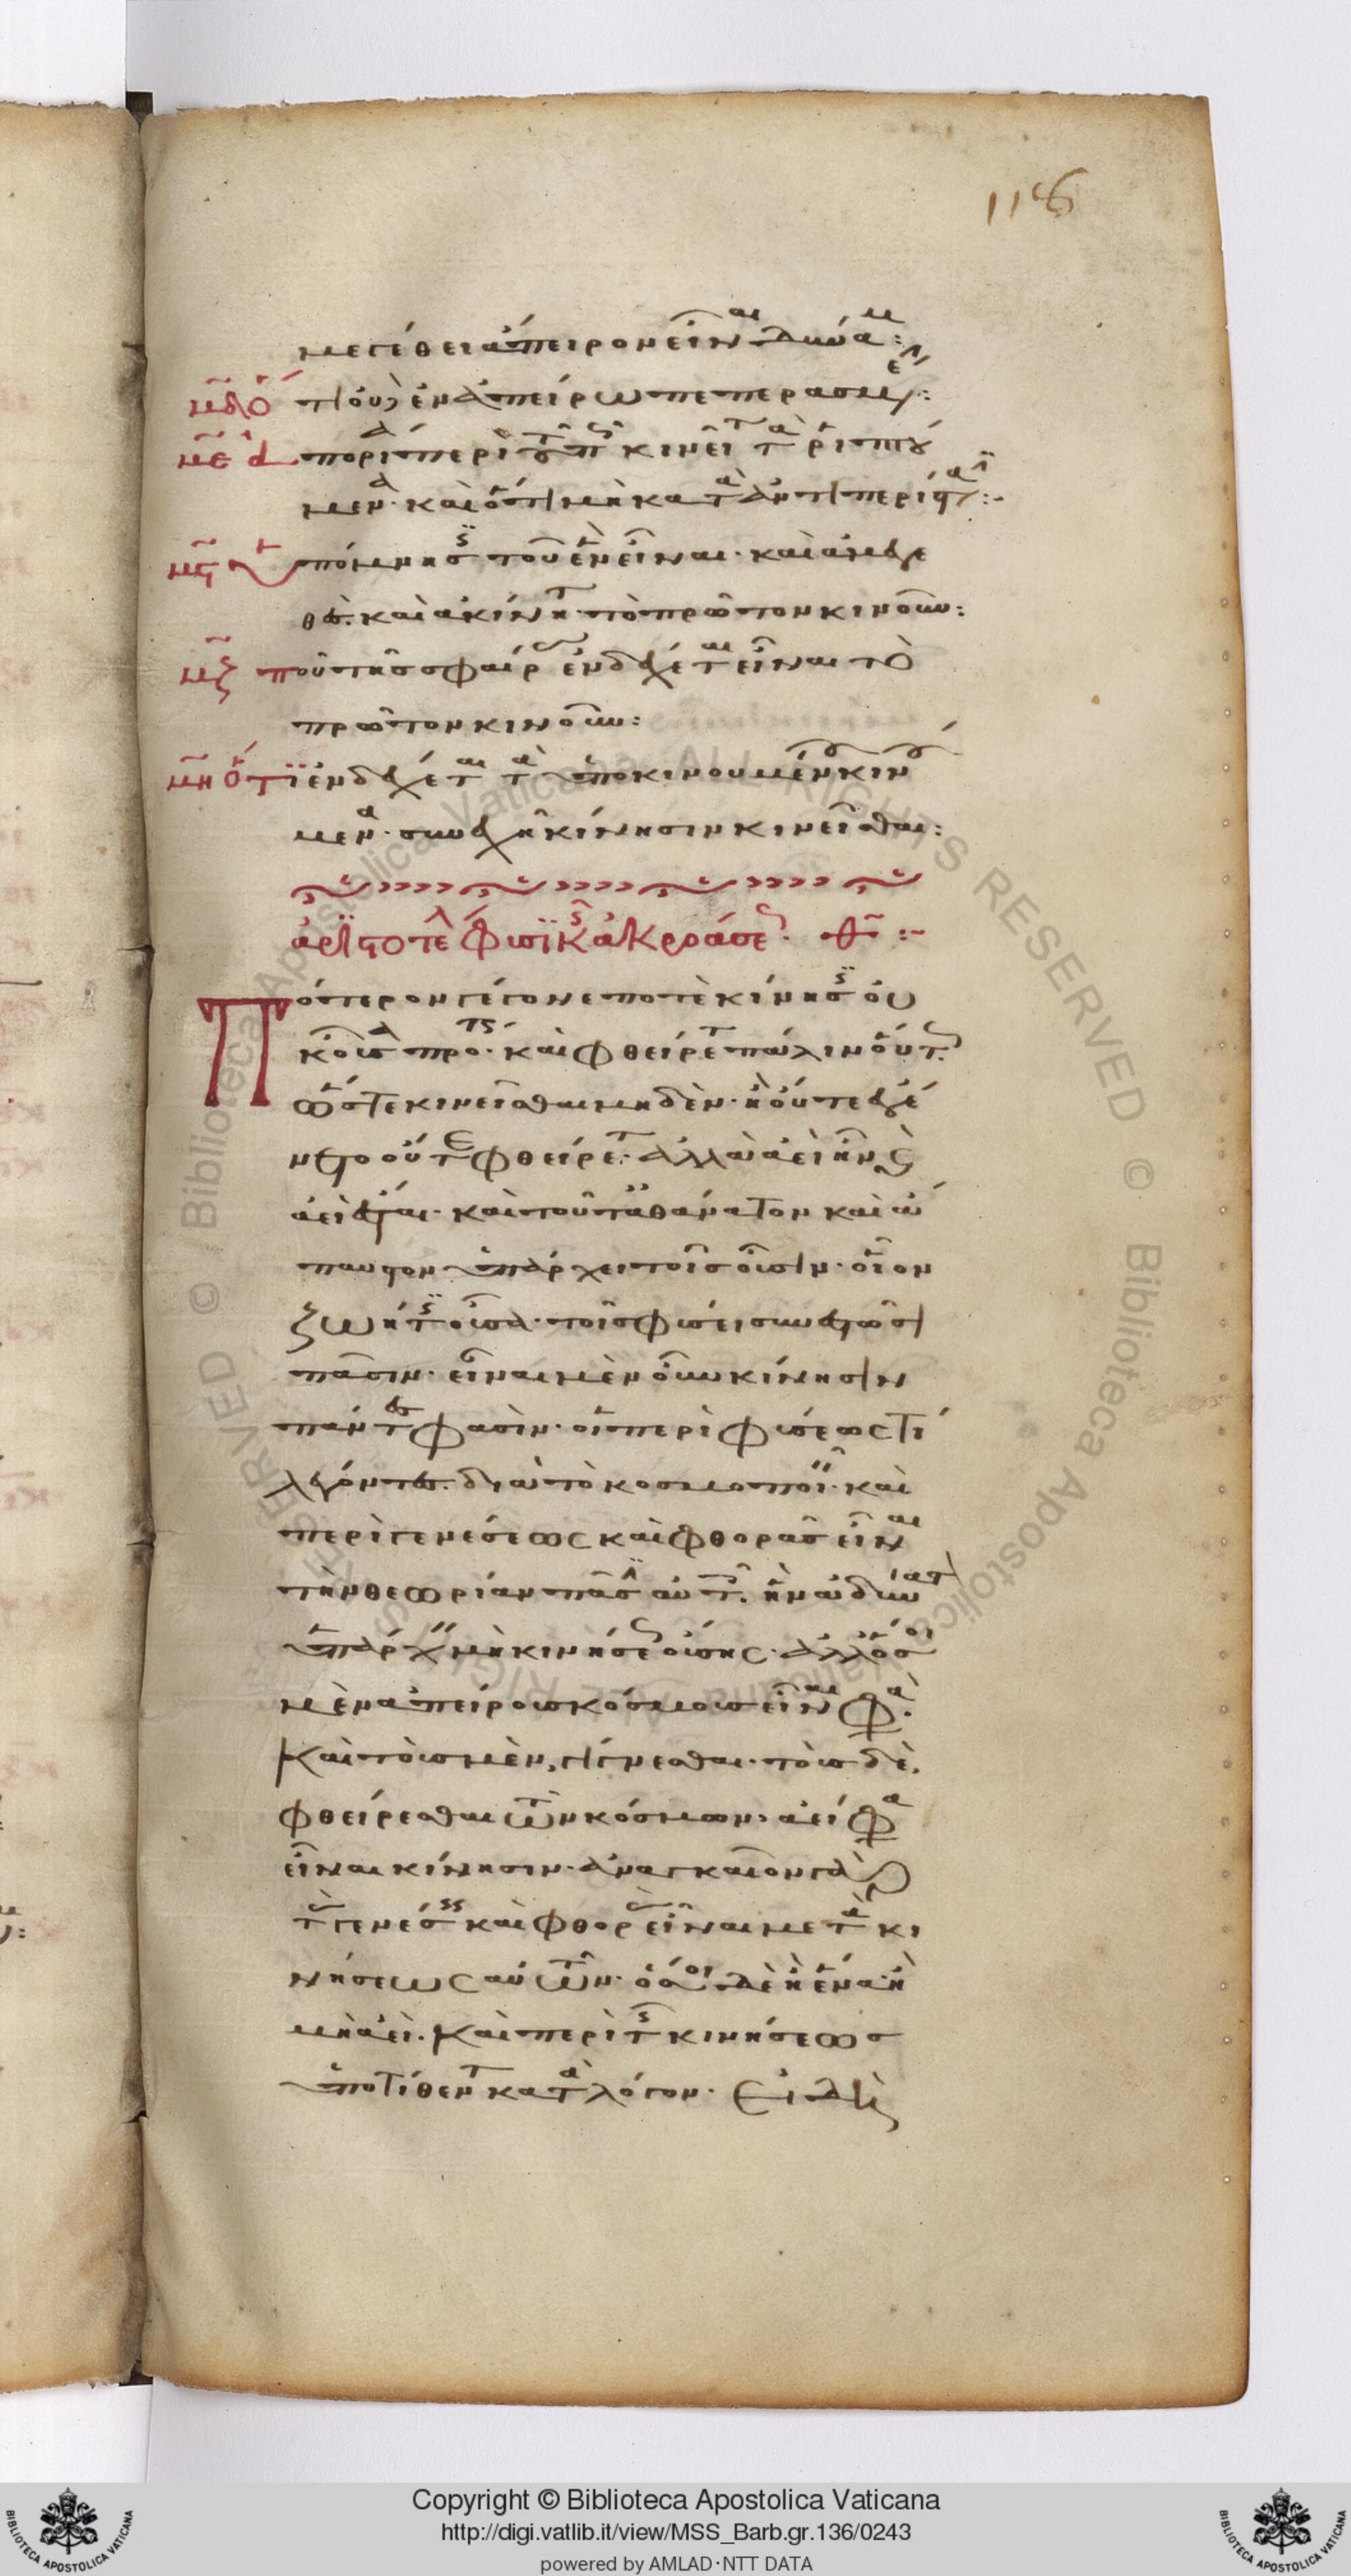 116
μεγέθει ἄπειρον εἶναι δύναμιν:
μδ ὅτι οὐδ' ἐν ἀπείρω πεπερασμένην:
με ἀπορία περὶ τοῦ πῶς κινεῖται τὰ ῥιπτού
μενα. καὶ ὅτι μὴ κατὰ ἀντιπερίστασιν:
μς ὑπόμνησις τοῦ ἓν εἶναι. καὶ ἀμέγε
θες. καὶ ἀκίνητον τὸ πρῶτον κινοῦν:
μζ ποῦ τῆς σφαίρας ἐνδέχεται εἶναι τὸ
πρῶτον κινοῦν:
μη ὅτι ἐνδέχεται τὰ ὑπὸ κινουμένου κινού
μενα. συνεχῆ κίνησιν κινεῖσθαι:
ἀριστοτέλους φυσικῆς ἀκροάσεως. θ :-
Πότερον γέγονέ ποτε κίνησις οὐ
κ οὖσα πρότερον. καὶ φθείρεται πάλιν οὕτως
ὥστε κινεῖσθαι μηδέν. ἢ οὔτε ἐγέ
νετο οὔτε φθείρεται. ἀλλὰ ἀεὶ ἦν καὶ
ἀεὶ ἔσται. καὶ τοῦτ' ἀθάνατον καὶ ἄ
παυστον ὑπάρχει τοῖς οὖσιν. οἷον
ζωή τις οὖσα. τοῖς φύσει συνεστῶσι
πᾶσιν. εἶναι μὲν οὖν κίνησιν
πάντες φασὶν. οἱ περὶ φύσεως τι
λέγοντες. διὰ τὸ κοσμοποιεῖν. καὶ
περὶ γενέσεως καὶ φθορᾶς εἶναι
τὴν θεωρίαν πᾶσιν αὐτοῖς. ἣν ἀδύνατον
ὑπάρχειν μὴ κινήσεως οὔσης. ἀλλ' ὅσοι
μὲν ἀπείρους κόσμους εἶναι φασὶ.
καὶ τοὺς μὲν, γίγνεσθαι. τοὺς δὲ.
φθείρεσθαι τῶν κόσμων. ἀεί φασιν
εἶναι κίνησιν. ἀναγκαῖον γὰρ
τὰς γενέσεις καὶ φθορὰς εἶναι μετὰ κι
νήσεως αὐτῶν. ὅσοι δὲ ἢ ἕνα. ἢ
μὴ ἀεὶ. καὶ περὶ τῆς κινήσεως
ὑποτίθενται κατὰ λόγον. εἰ δή
Copyright © Biblioteca Apostolica Vaticana
http://digi.vatlib.it/view/MSS_Barb.gr.136/0243
powered by AMLAD·NTT DATA